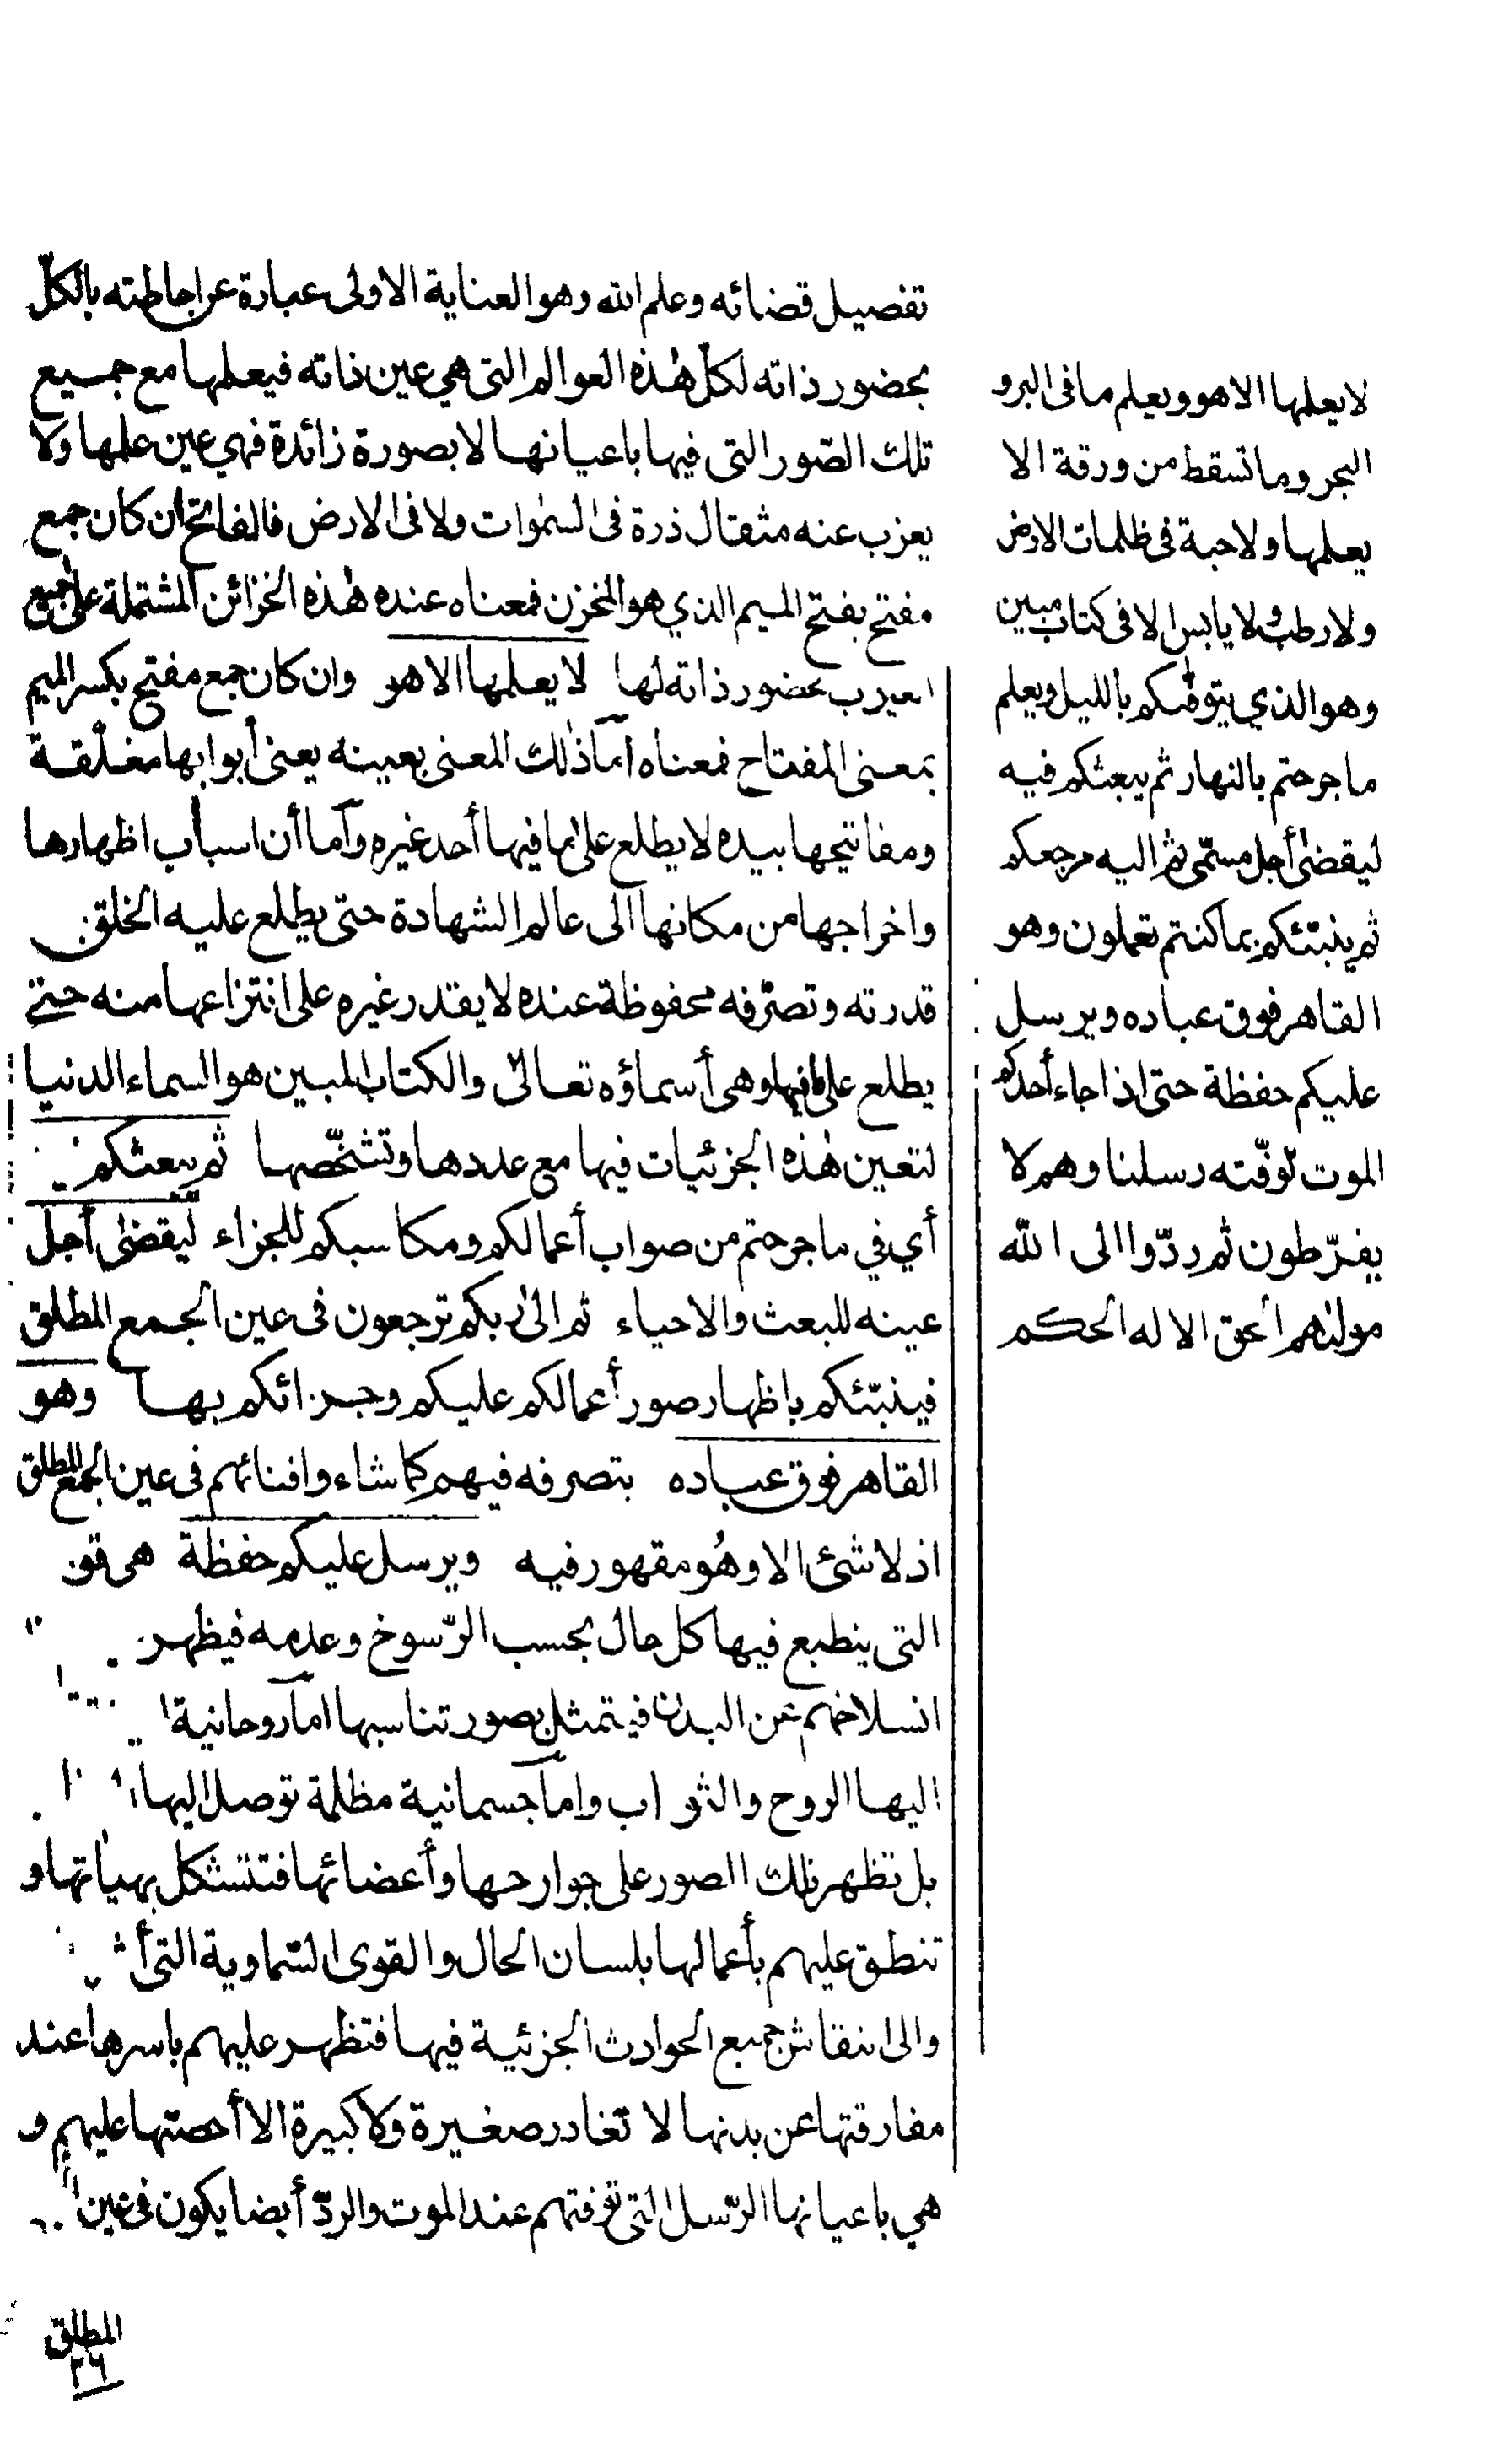 لا يعلمها الا هو ويعلم ما فى البر و
البحر وما تسقط من ورقة الا
يعلمها ولا حبة فى ظلمات الارض
ولا رطب ولا يابس الا فى كتاب مبين
وهو الذي يتوفّٰىكم بالليل ويعلم
ما جرحتم بالنهار ثم يبعثكم فيه
ليقضىٰ أجل مسمّى ثم اليه مرجعكم
ثم ينبّئكم بما كنتم تعملون وهو
القاهر فوق عباده ويرسل
عليكم حفظة حتى اذا جاء أحدكم
الموت توفّته رسلنا وهم لا
يفرّطون ثم ردّوا الى اللّه
مولٰىهم الحق الا له الحكم
تفصيل قضائه وعلم الله وهو العناية الاولى عبارة عن احاطته بالكلّ
بحضور ذاته لكلّ هٰذه العوالم التى هي عين ذاته فيعلمها مع جميع
تلك الصّور التى فيها باعيانها لا بصورة زائدة فهي عين علمها ولا
يعزب عنه مثقال ذرة فى السمٰوات ولا فى الارض فالمفاتح ان كان جمع
مفتح بفتح الميم الذي هو المخزن فمعناه عنده هٰذه الخزائن المشتملة على جميع
الغيوب بحضور ذاته لها لا يعلمها الا هو وان كان جمع مفتح بكسر الميم
بمعنى المفتاح فمعناه امّا ذٰلك المعنى بعينه يعنى أبوابها مغلّقة
ومفاتيحها بيده لا يطلع على ما فيها أحد غيره وامّا أن اسباب اظهارها
واخراجها من مكانها الى عالم الشهادة حتى يطلع عليه الخلق
قدرته وتصرّفه محفوظة عنده لا يقدر غيره على انتزاعها منه حتى
يطلع على ما فيها وهى أسماؤه تعالىٰ والكتاب المبين هو السماء الدنيا
لتعين هٰذه الجزئيات فيها مع عددها وتشخّصها ثم يبعثكم
أي في ما جرحتم من صواب أعمالكم ومكاسبكم للجزاء ليقضىٰ أجل
عينه للبعث والاحياء ثم الى ربكم ترجعون فى عين الجمع المطلق
فينبّئكم باظهار صور أعمالكم عليكم وجزائكم بها وهو
القاهر فوق عباده بتصرفه فيهم كما شاء وافنائهم فى عين الجمع المطلق
اذ لا شئ الا وهُو مقهور فيه ويرسل عليكم حفظة هى
التى ينطبع فيها كل حال بحسب الرّسوخ وعدمه فيظهر
انسلاخهم عن البدن فيتمثل بصور تناسبها امّا روحانية
اليها الروح والثواب وامّا جسمانية مظلمة توصل اليها
بل تظهر تلك الصور على جوارحها وأعضائها فتتشكل بهيآتها و
تنطق عليهم بأعمالها بلسان الحال والقوى السّماوية التى
والى انتقاش جميع الحوادث الجزئية فيها فتظهر عليهم باسرها عند
مفارقتها عن بدنها لا تغادر صغيرة ولا كبيرة الا أحصتها عليهم و
هي باعيانها الرّسل التى توفتهم عند الموت والردّ أيضا يكون فى عين
المطلق
٣٦